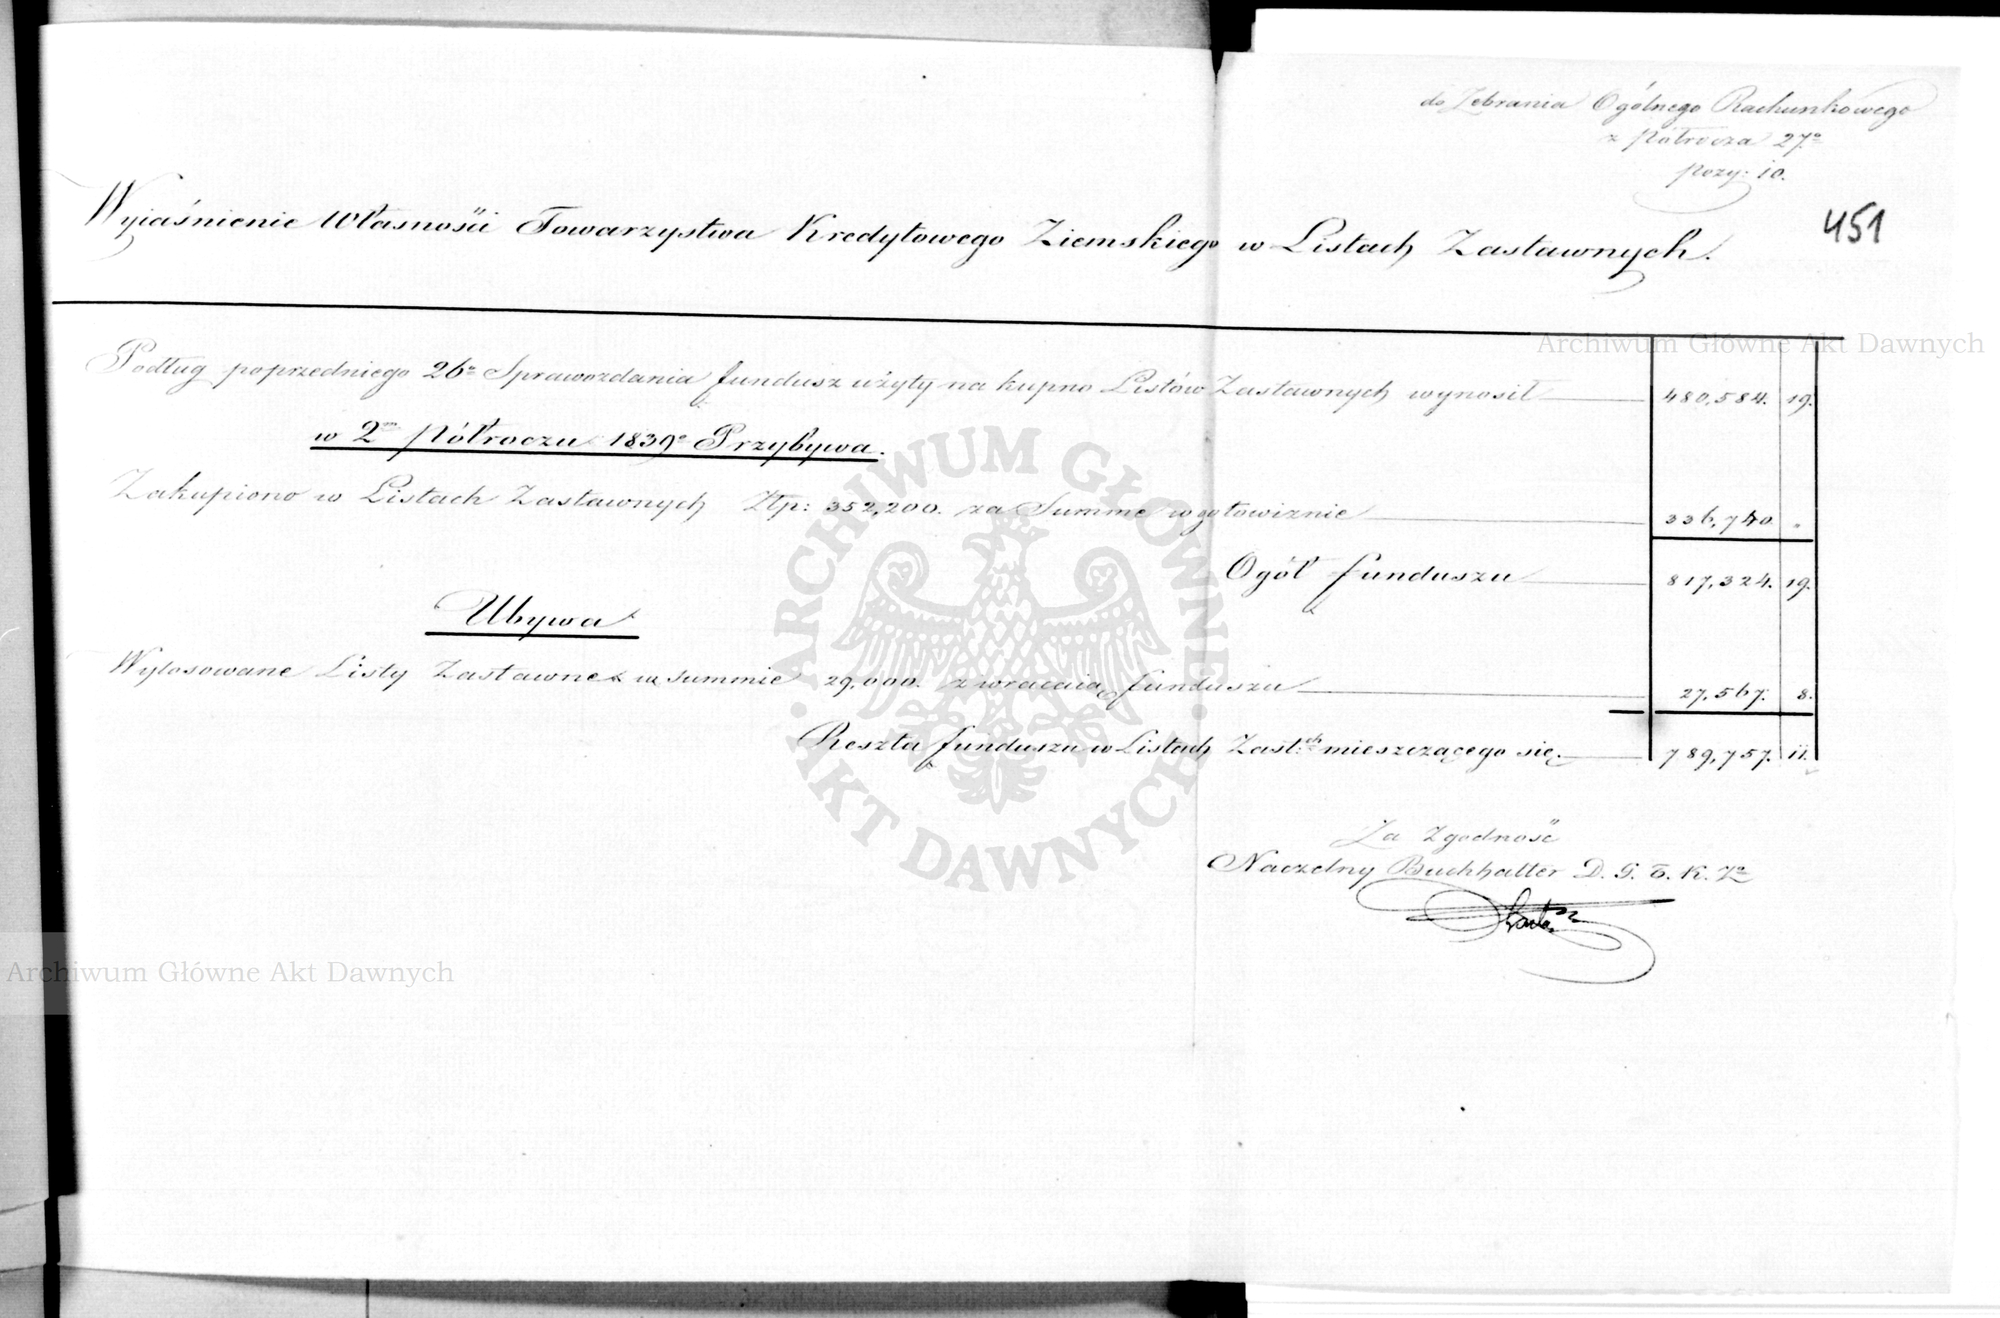 do Zebrania Ogólnego Rachunkowego
z Półrocza 27º
pozy: 10.
451
Wyiaśnienie Własności Towarzystwa Kredytowego Ziemskiego w Listach Zastawnych.
Podług poprzedniego 26º Sprawozdania fundusz użyty na kupno Listów Zastawnych wynosił 480,584. 19.
w 2m Półroczu 1839º Przybywa.
Zakupiono w Listach Zastawnych Złp: 352,200. za Summe w gotowiznie 336,740. "
Ogół funduszu 817,324. 19.
Ubywa
Wylosowane Listy Zastawne w summie 29,000. zwracaią funduszu 27,567. 8.
Reszta funduszu w Listach Zast:ch mieszczącego się. 789,757. 11.
Za Zgodność
Naczelny Buchhalter D. G. T. K. Zº
Archiwum Główne Akt Dawnych
ARCHIWUM GŁÓWNE AKT DAWNYCH
Archiwum Główne Akt Dawnych